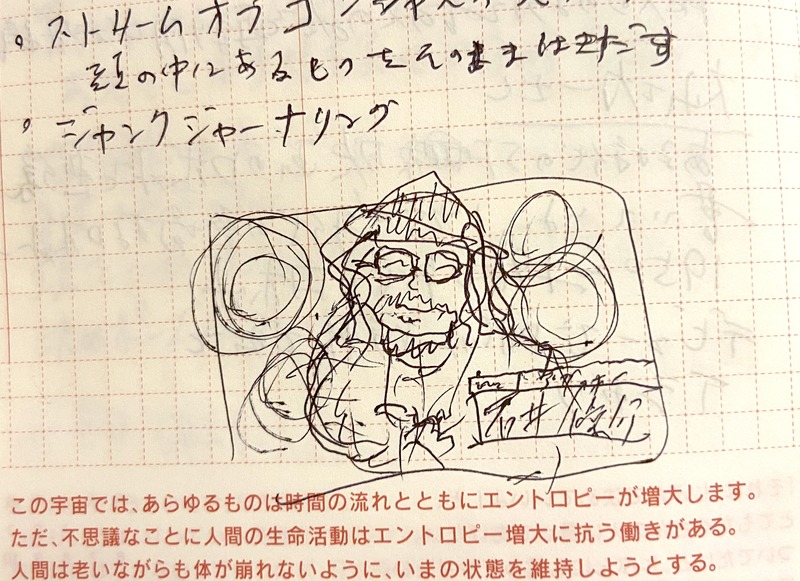 ・ストリームオブコンシャスネス
頭の中にあるものをそのままはきだす
・ジャンクジャーナリング
石井
この宇宙では、あらゆるものは時間の流れとともにエントロピーが増大します。
ただ、不思議なことに人間の生命活動はエントロピー増大に抗う働きがある。
人間は老いながらも体が崩れないように、いまの状態を維持しようとする。